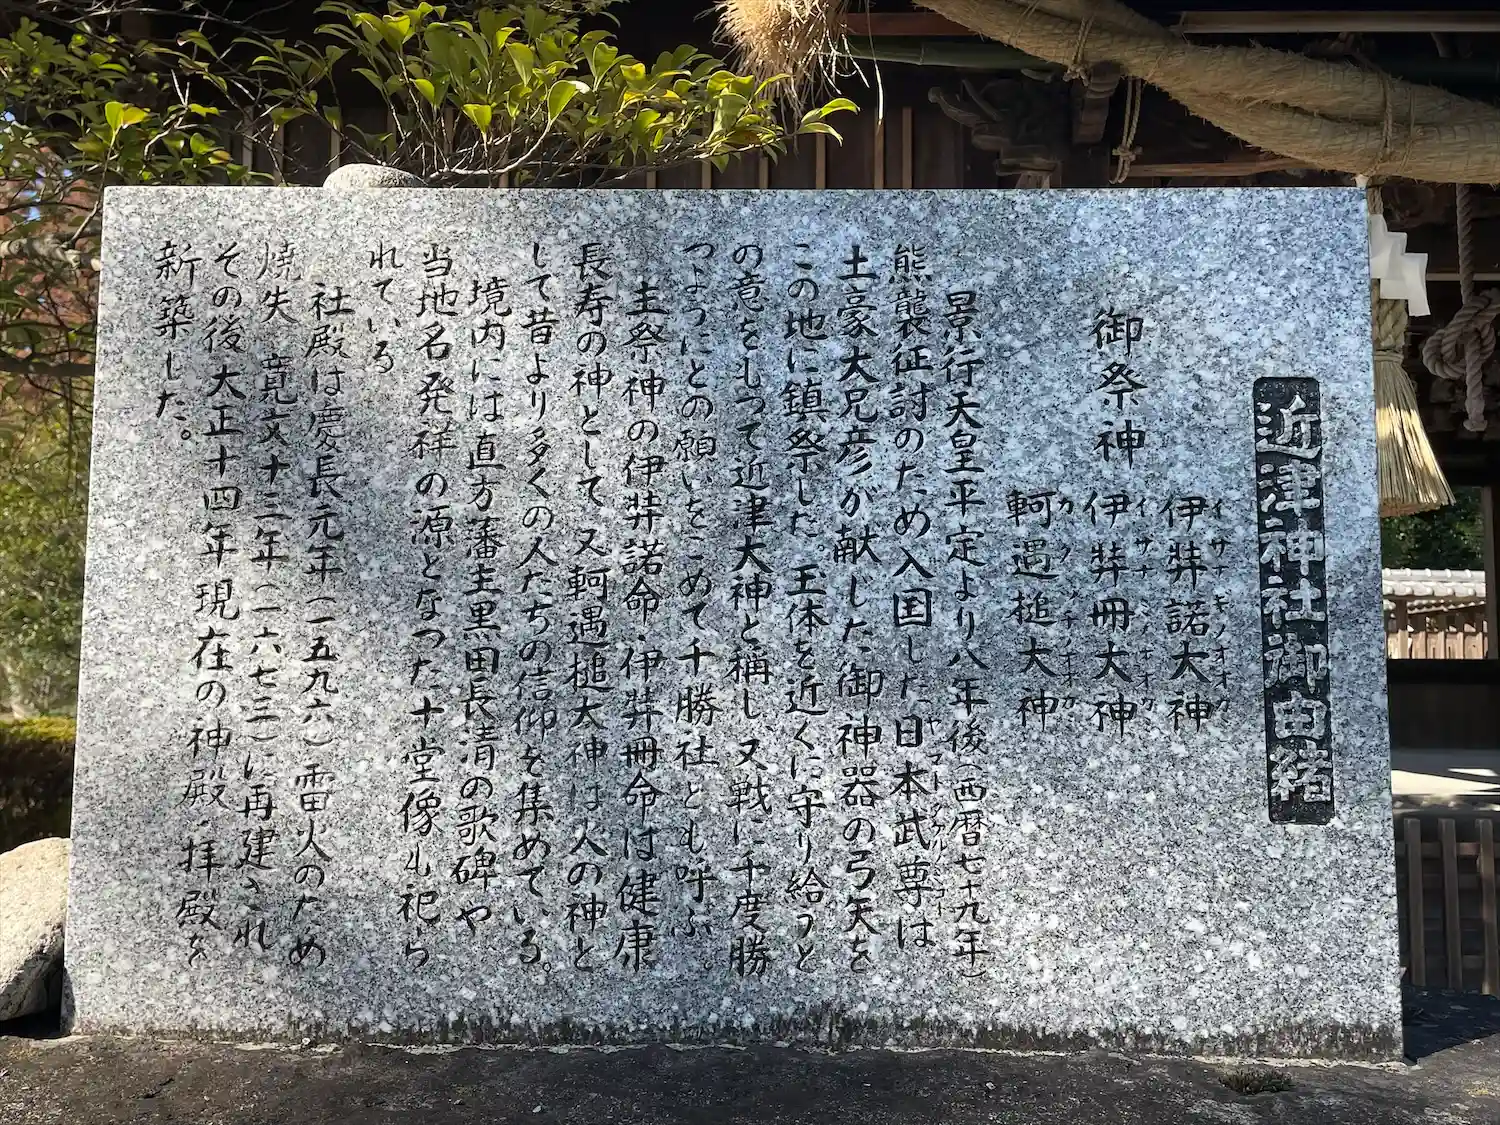 近津神社御由緒
伊弉諾大神
イサナギノオオカミ
御祭神 伊弉冊大神
イサナミノオオカミ
軻遇槌大神
カクツチノオオカミ
景行天皇平定より八年後(西暦七十九年)
熊襲征討のため入国した日本武尊は
ヤマトタケルノミコト
土豪大兄彦が献した御神器の弓矢を
この地に鎮祭した。王体を近くに守り給うと
の意をもって近津大神と稱し又戦に千度勝
つようにとの願いをこめて千勝社とも呼ぶ。
主祭神の伊弉諾命・伊弉冊命は健康
長寿の神として又軻遇槌大神は火の神と
して昔より多くの人たちの信仰を集めている。
境内には直方藩主黒田長清の歌碑や
当地名発祥の源となった十堂像も祀ら
れている
社殿は慶長元年(一五九六)雷火のため
焼失 寛文十三年(一六七三)に再建され
その後大正十四年現在の神殿・拝殿を
新築した。